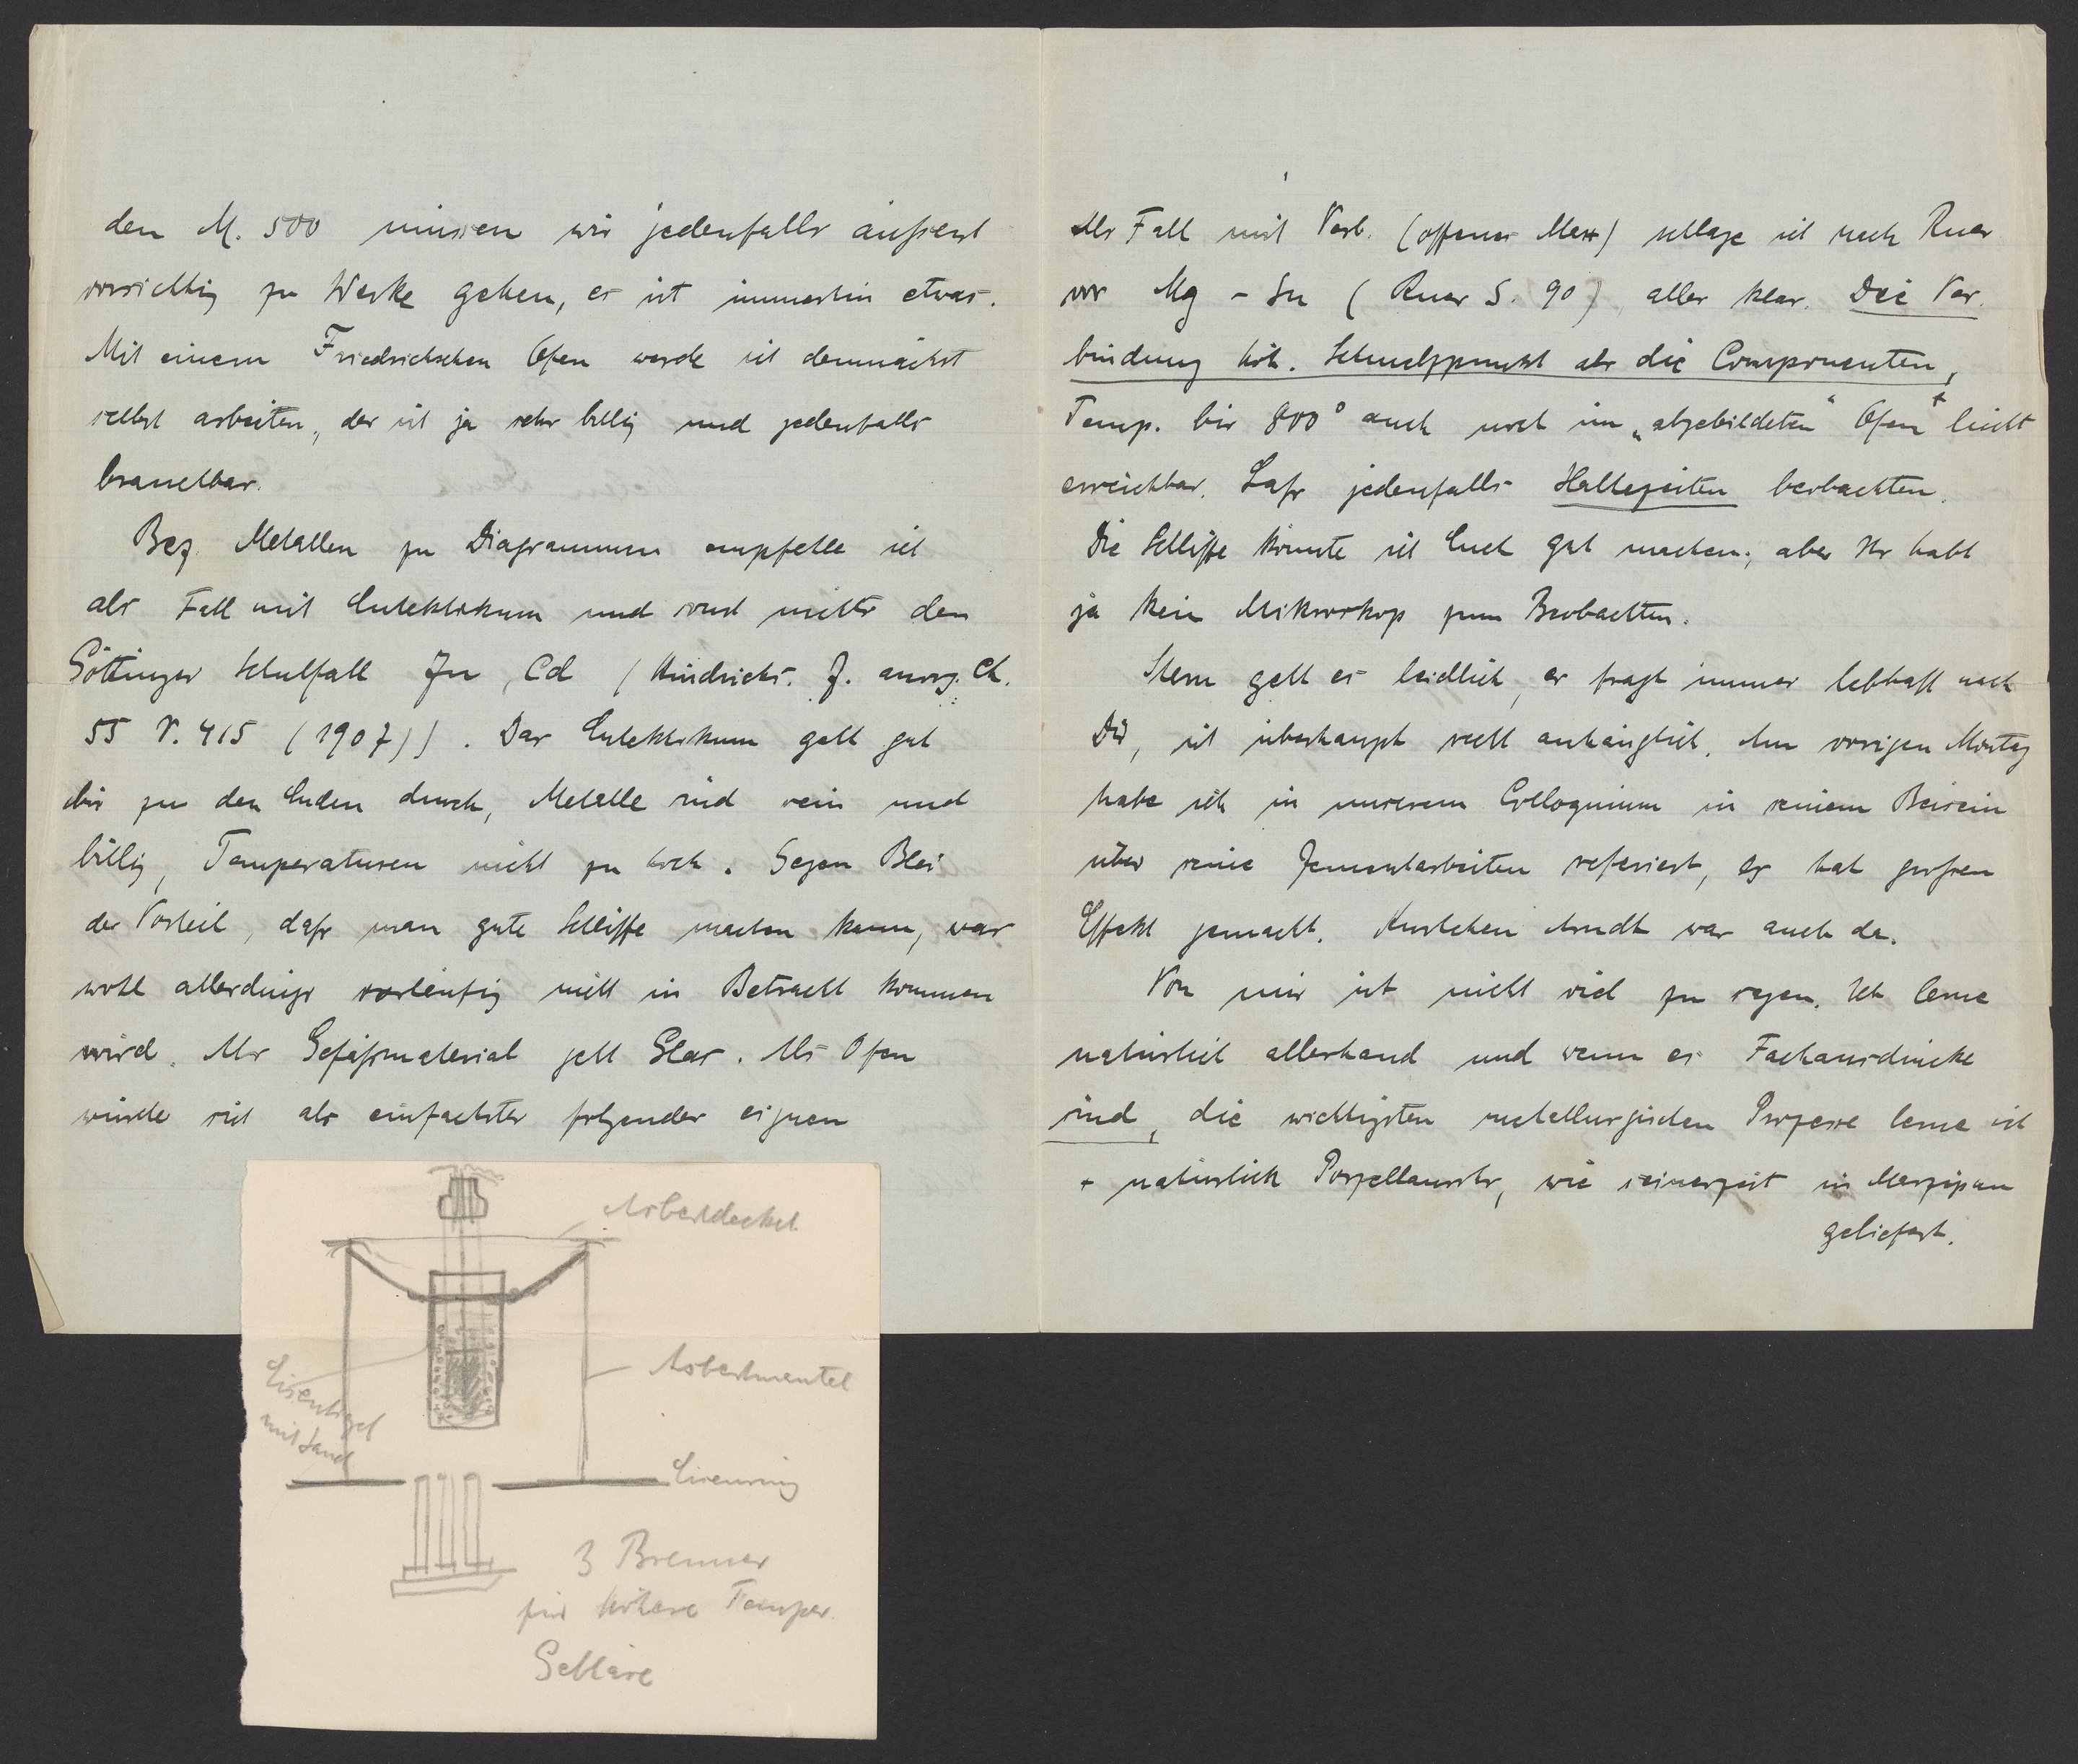 den M. 500 müssen wir jedenfalls äußerst
vorsichtig zu Werke gehen, es ist immerhin etwas.
Mit einem Friedrichschen Ofen werde ich demnächst
selbst arbeiten, der ist ja sehr billig und jedenfalls
brauchbar.
Bez. Metallen zu Diagrammen empfehle ich
als Fall mit Eutektikum und sonst nichts den
Göttinger Schulfall Zn, Cd (Hindrichs. Z. anorg. Ch.
55 S. 415 (1907)). Das Eutektikum geht gut
bis zu den Enden durch, Metalle sind rein und
billig, Temperaturen nicht zu hoch. Gegen Blei
der Vorteil, dafs man gute Schliffe machen kann, was
wohl allerdings vorläufig nicht in Betracht kommen
wird. Als Gefäfsmaterial geht Glas. Als Ofen
würde sich als einfachster folgender eignen
Asbestdeckel
Eisentigel
mit Sand
Asbestmantel
Eisenring
3 Brenner
für höhere Temper.
Gebläse
Als Fall mit Verb. (offenes Max) schlage ich nach Ruer
vor Mg - Sn (Ruer S. 90), alles klar. Die Ver.
bindung höh. Schmelzpunkt als die Componenten,
Temp. bis 800° auch noch im „abgebildeten" Ofen + leicht
erreichbar. Lafs jedenfalls Haltezeiten beobachten.
Die Schliffe könnte ich Euch gut machen, aber Ihr habt
ja kein Mikroskop zum Beobachten.
Stern geht es leidlich, er fragt immer lebhaft nach
Dir, ist überhaupt recht anhänglich. Am vorigen Montag
habe ich in unserem Colloquium in seinem Beisein
über seine Zementarbeiten referiert, es hat grofsen
Effekt gemacht. Kurtchen Arndt war auch da.
Von mir ist nicht viel zu sagen. Ich lerne
natürlich allerhand und wenn es Fachausdrücke
sind, die wichtigsten metallurgischen Prozesse lerne ich
+ natürlich Porzellanrohr, wie seinerzeit in Marzipan
geliefert.